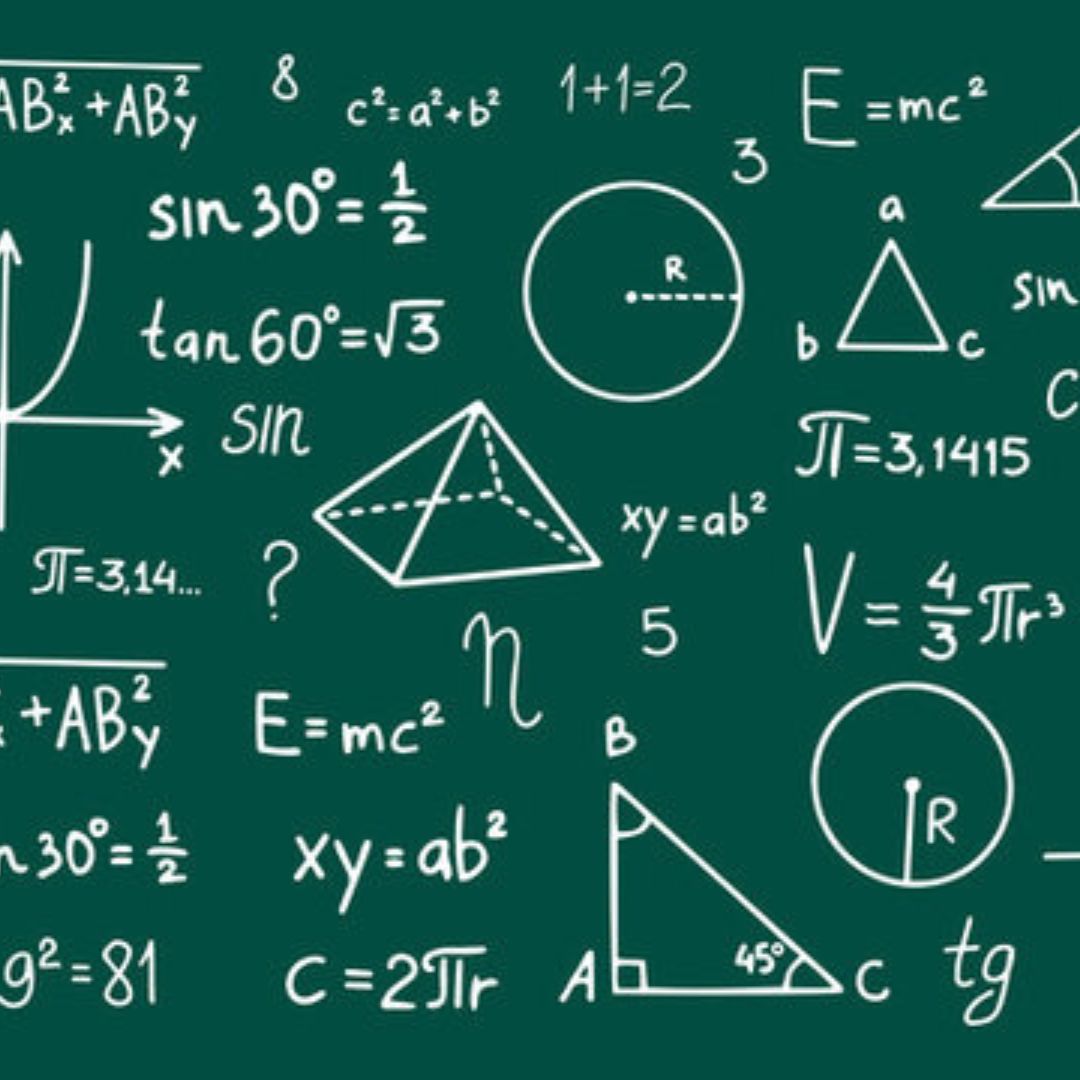 AB²ₓ+AB²ᵧ
8
c²=a²+b²
1+1=2
E=mc²
3
sin30°=1/2
R
a
b
c
sin
tan60°=√3
x
sin
C
π=3,1415
xy=ab²
π=3,14...
?
V=4/3πr³
η
5
+AB²ᵧ
E=mc²
B
R
n30°=1/2
xy=ab²
9²=81
C=2πr
A
45°
C
tg